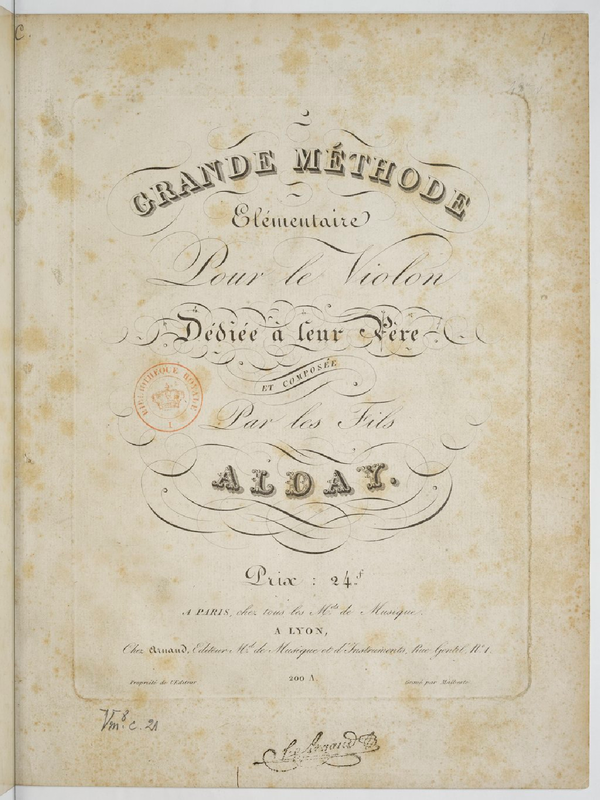 C
GRANDE MÉTHODE
Elémentaire
Pour le Violon
Dédiée à leur Père
ET COMPOSÉE
Par les Fils
ALDAY.
BIBLIOTHEQUE ROYALE
Prix : 24f
A PARIS, chez tous les Mds de Musique.
A LYON,
Chez Arnaud, Editeur Md de Musique et d'Instruments, Rue Gentil, No 1.
Propriété de l'Editeur
200 A
Gravé par
Vm8 c. 21
Arnaud